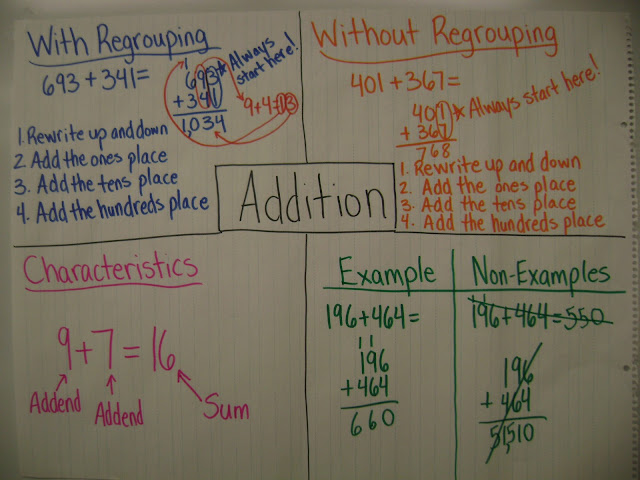 With Regrouping
693 + 341 =
1
693
+ 341
1,034
* Always
start here!
9+4=13
1. Rewrite up and down
2. Add the ones place
3. Add the tens place
4. Add the hundreds place
Without Regrouping
401 + 367 =
401
+ 367
768
* Always start here!
1. Rewrite up and down
2. Add the ones place
3. Add the tens place
4. Add the hundreds place
Addition
Characteristics
9 + 7 = 16
Addend
Addend
Sum
Example
196 + 464 =
1 1
196
+ 464
660
Non-Examples
196 + 464 = 550
196
+ 464
51510